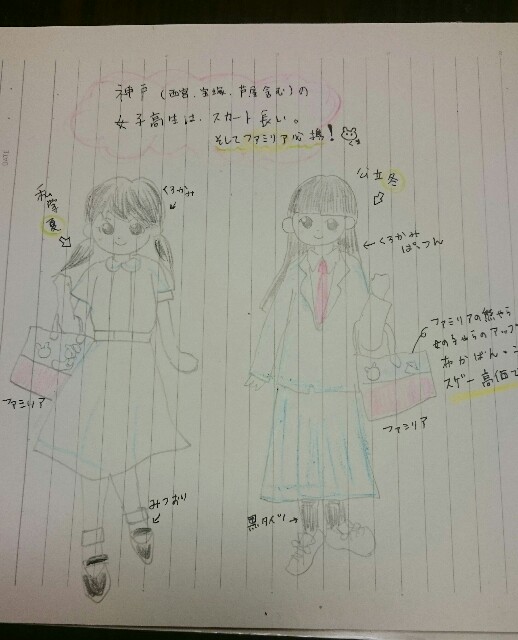 神戸(西宮、宝塚、芦屋含む)の
女子高生は、スカート長い。
そしてファミリア必携!
私学
夏
くろかみ
公立冬
くろかみ
ぱっつん
ファミリアの熊やら
女の子やらのアップ
スゲー高価で
ファミリア
ファミリア
みつおり
黒タイツ